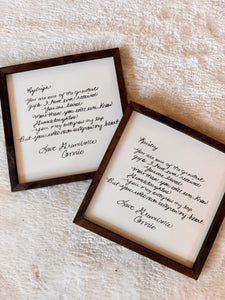 Ryleigh,
You are one of the greatest
gifts I have ever received
You are loved
more than you will ever know
Granddaughter
You may outgrow my lap
But you will never outgrow my heart
Love Grandma
Connie
You are one of the greatest
gifts I have ever received
You are loved
more than you will ever know
Granddaughter
You may outgrow my lap
But you will never outgrow my heart
Love Grandma
Connie